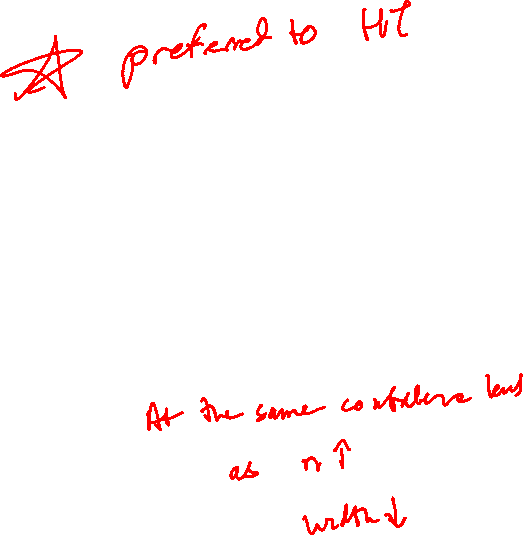 preferred to HT
At the same confidence level
as n↑
width↓